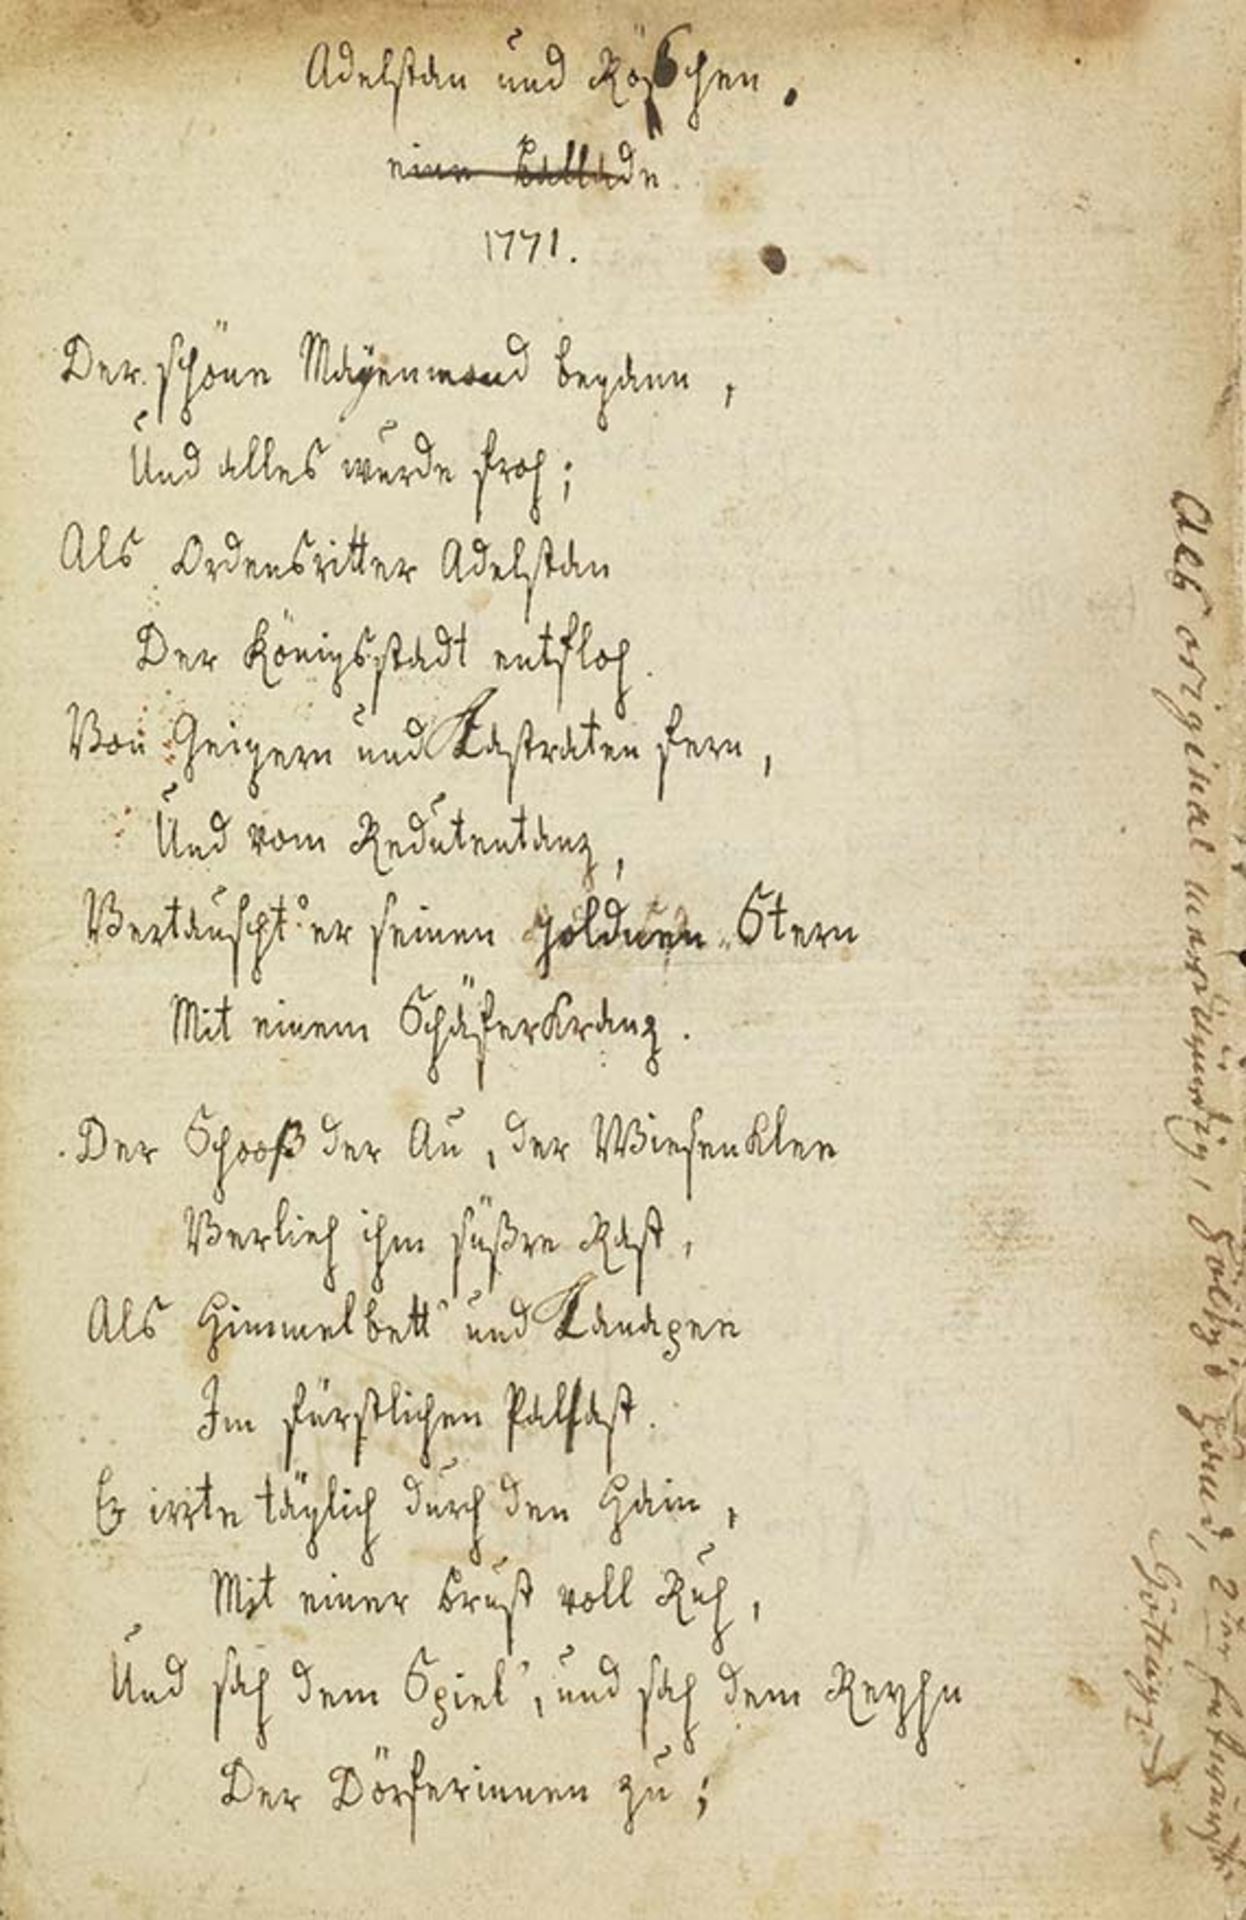 Adelstan und Röschen.
eine Ballade.
1771.
Der schöne Mayenmond begann,
Und alles wurde froh;
Als Ordensritter Adelstan
Der Königsstadt entfloh.
Von Geigern und Kastraten fern,
Und vom Redutentanz,
Vertauscht' er seinen goldnen Stern
Mit einem Schäferkranz.
Der Schooß der Au, der Wiesenklee
Verlieh ihm süßre Rast,
Als Himmelbett und Kanapee
Im fürstlichen Pallast.
Er irrte täglich durch den Hain,
Mit einer Brust voll Ruh,
Und sah dem Spiel, und sah dem Reyhn
Der Dörferinnen zu;
Als original merkwürdig, Höltys Hand, 2ter
Göttingen